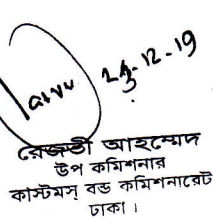 23-12-19
রেজভী আহম্মেদ
উপ কমিশনার
কাস্টমস্ বন্ড কমিশনারেট
ঢাকা।